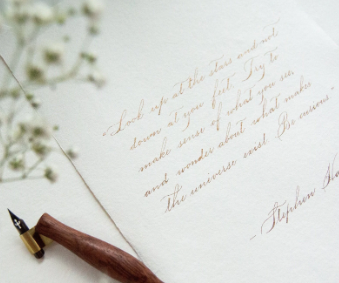 "Look up at the stars and not
down at your feet. Try to
make sense of what you see,
and wonder about what makes
the universe exist. Be curious."
- Stephen